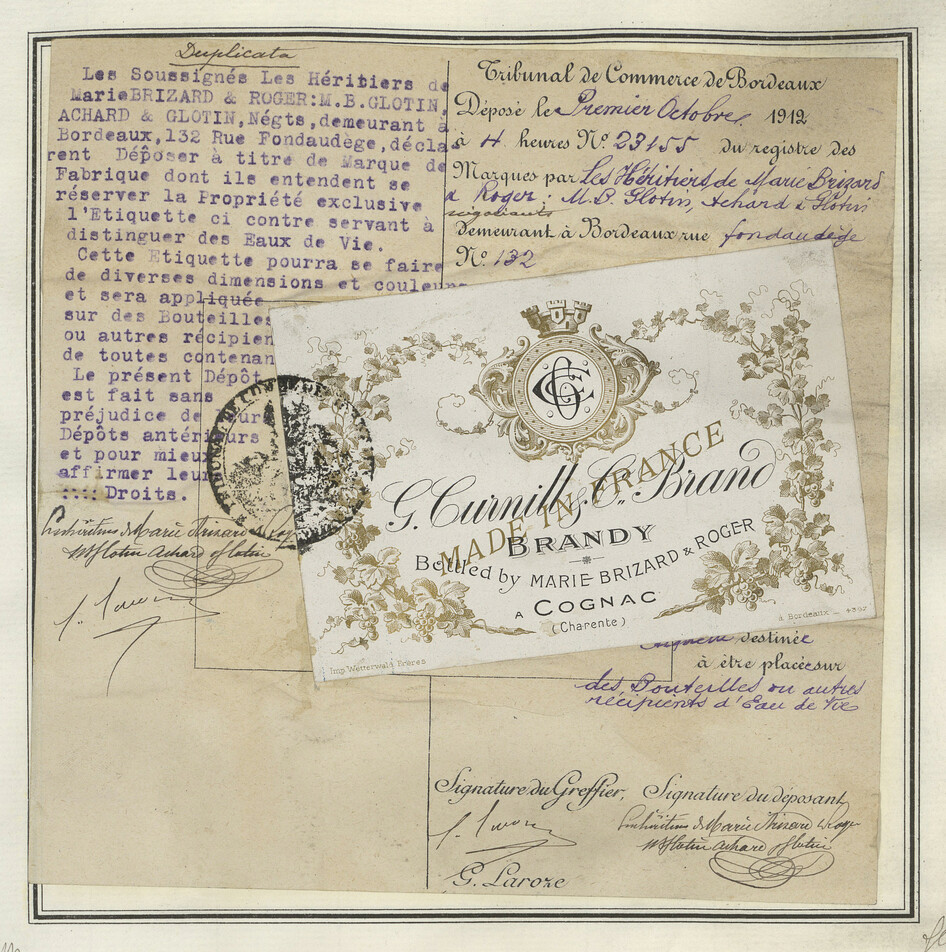 Duplicata
Les Soussignés Les Héritiers de
MarieBRIZARD & ROGER:M.B.GLOTIN,
ACHARD & GLOTIN,Négts,demeurant à
Bordeaux,132 Rue Fondaudège,décla
rent Déposer à titre de Marque de
Fabrique dont ils entendent se
réserver la Propriété exclusive
l'Etiquette ci contre servant à
distinguer des Eaux de Vie.
Cette Etiquette pourra se faire
de diverses dimensions et couleurs
et sera appliquée
sur des Bouteilles
ou autres récipien
de toutes contenan
Le présent Dépôt
est fait sans
préjudice de leurs
Dépôts antérieurs
et pour mieux
affirmer leur
:::: Droits.
Les héritiers de Marie Brizard & Roger
MB Glotin Achard & Glotin
Tribunal de Commerce de Bordeaux
Déposé le Premier Octobre 1912
à 4 heures No. 23155 du registre des
Marques par Les Héritiers de Marie Brizard
& Roger: M.B. Glotin, Achard & Glotin
négociants
Demeurant à Bordeaux rue fondaudège
No. 132
CGC
G. Curnill & Co. Brand
MADE IN FRANCE
BRANDY
Bottled by MARIE-BRIZARD & ROGER
A COGNAC
(Charente)
Imp. Wetterwald Frères
à Bordeaux _ 4392
destinée
à être placée sur
des Bouteilles ou autres
récipients d'Eau de Vie
Signature du Greffier, Signature du déposant
Les héritiers de Marie Brizard & Roger
MB Glotin Achard & Glotin
G. Laroze